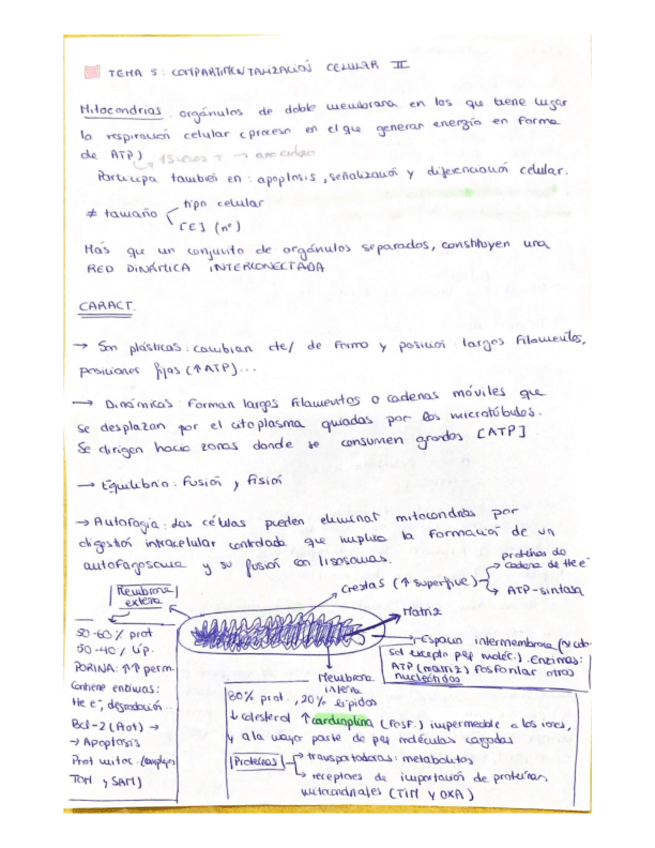 TEMA 5: COMPARTIMENTALIZACIÓN CELULAR II
Mitocondrias: orgánulos de doble membrana en los que tiene lugar
la respiración celular (proceso en el que generan energía en forma
de ATP)
Participa también en: apoptosis, señalización y diferenciación celular.
≠ tamaño
tipo celular
[E] (nº)
Más que un conjunto de orgánulos separados, constituyen una
RED DINÁMICA INTERCONECTADA
CARACT.
→ Son plásticas: cambian cte/ de forma y posición: largos filamentos,
posiciones fijas (↑ATP)...
→ Dinámicas: Forman largos filamentos o cadenas móviles que
se desplazan por el citoplasma guiadas por los microtúbulos.
Se dirigen hacia zonas donde se consumen grandes [ATP]
→ Equilibrio: Fusión y fisión
→ Autofagia: Las células pueden eliminar mitocondrias por
digestión intracelular controlada que implica la formación de un
autofagosoma y su fusión con lisosomas.
Crestas (↑ superficie)
proteínas de
cadena de tte e⁻
ATP-sintasa
Matriz
Membrana
externa
50-60% prot
50-40% líp.
PORINA: ↑↑ perm.
Contiene enzimas:
tte e⁻, degradación...
Bcl-2 (Act) →
→ Apoptosis
Prot mitoc.
TOM y SAM)
Espacio intermembrana
sol excepto peq moléc.). Enzimas:
ATP (matriz) fosforilar otros
nucleótidos
Membrana
interna
80% prot., 20% lípidos
↓ colesterol ↑ cardiolipina (FOSF.) impermeable a los iones,
y a la mayor parte de peq moléculas cargadas
Proteínas
transportadoras: metabolitos
receptores de importación de proteínas
mitocondriales (TIM y OXA)